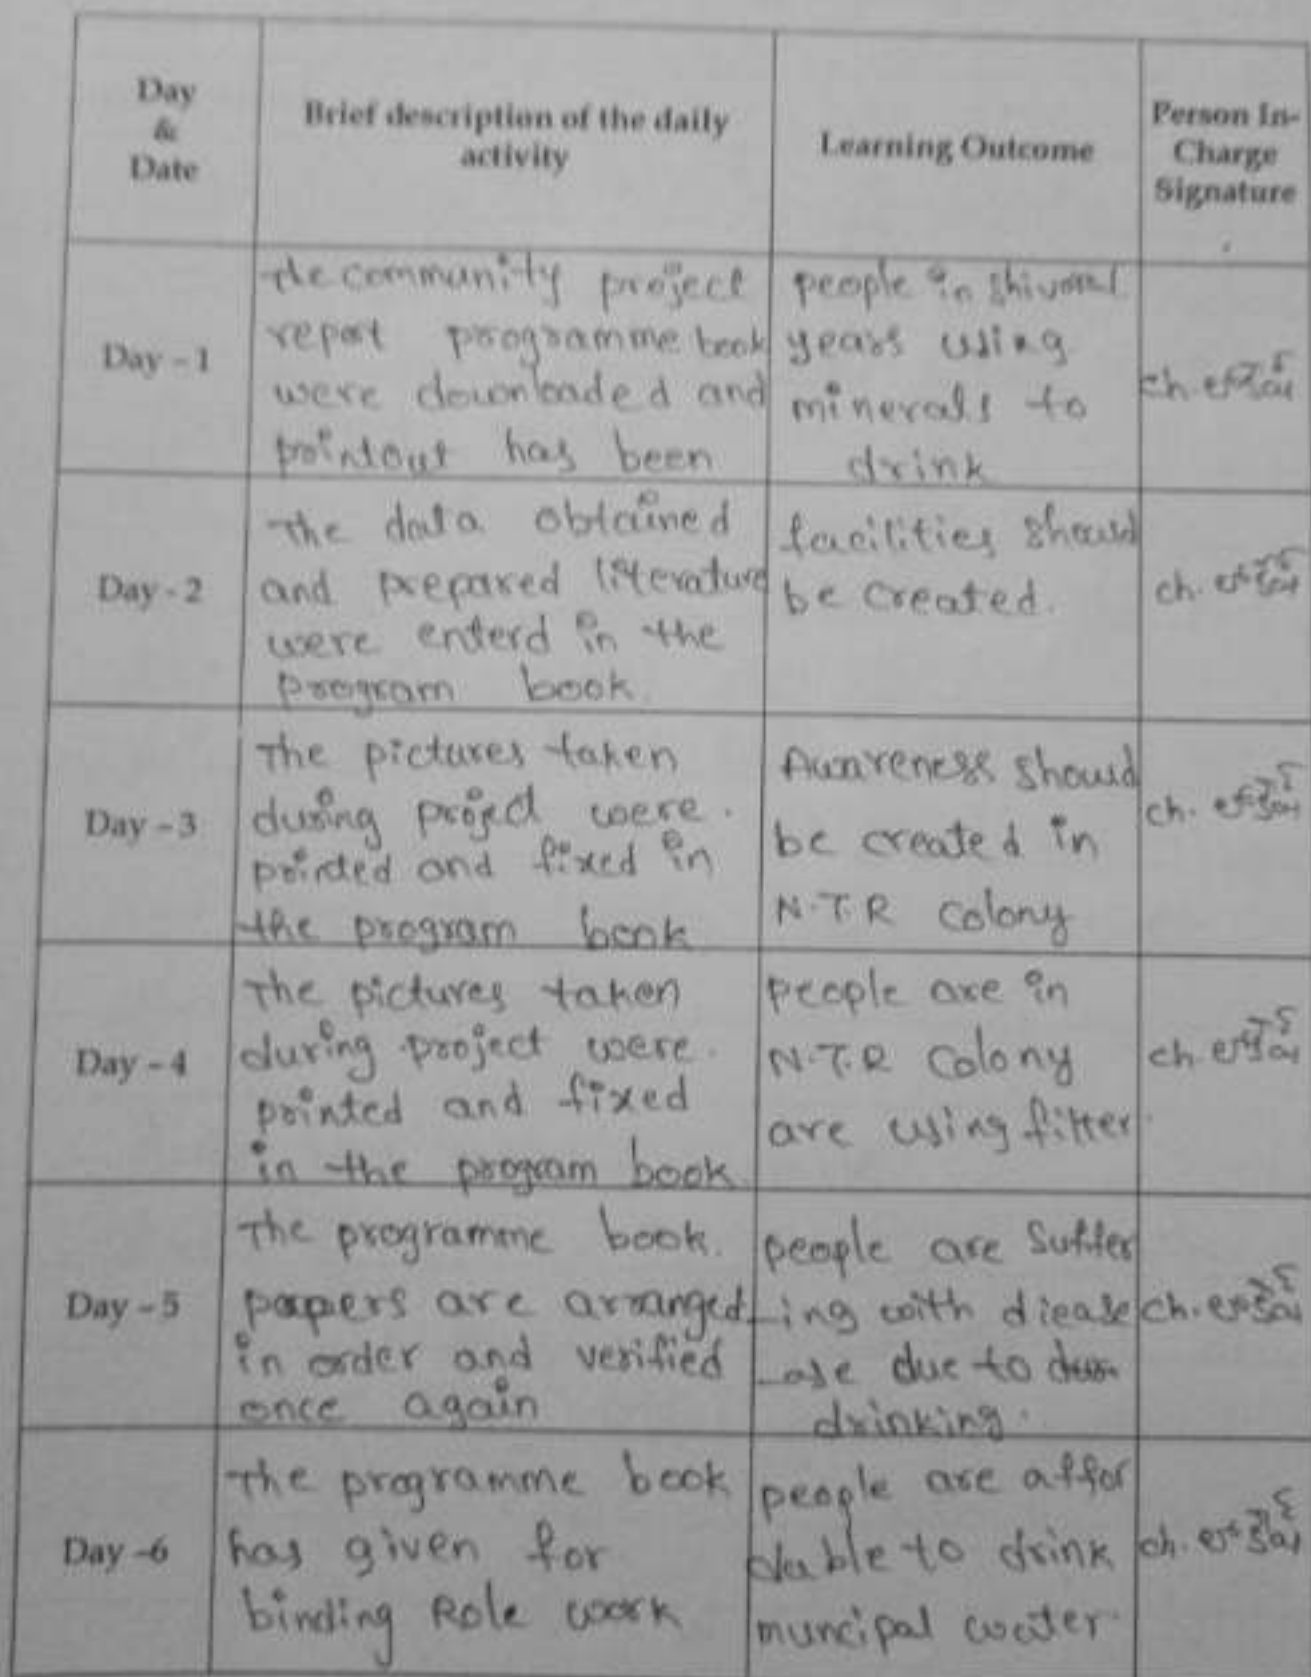 Day
&
Date
Brief description of the daily
activity
Learning Outcome
Person In-
Charge
Signature
Day - 1
The community project
report programme book
were downloaded and
printout has been
people in
years using
minerals to
drink
ch.
Day - 2
The data obtained
and prepared literature
were enterd in the
program book.
facilities should
be created.
ch.
Day - 3
The pictures taken
during project were.
printed and fixed in
the program book
Awareness should
be created in
N.T.R colony
ch.
Day - 4
The pictures taken
during project were.
printed and fixed
in the program book
people are in
N.T.R colony
are using filter.
ch.
Day - 5
The programme book.
papers are arranged
in order and verified
once again
people are Suffer
-ing with diease
-ase due to
drinking.
ch.
Day -6
The programme book
has given for
binding Role work
people are affor
dable to drink
muncipal water.
ch.